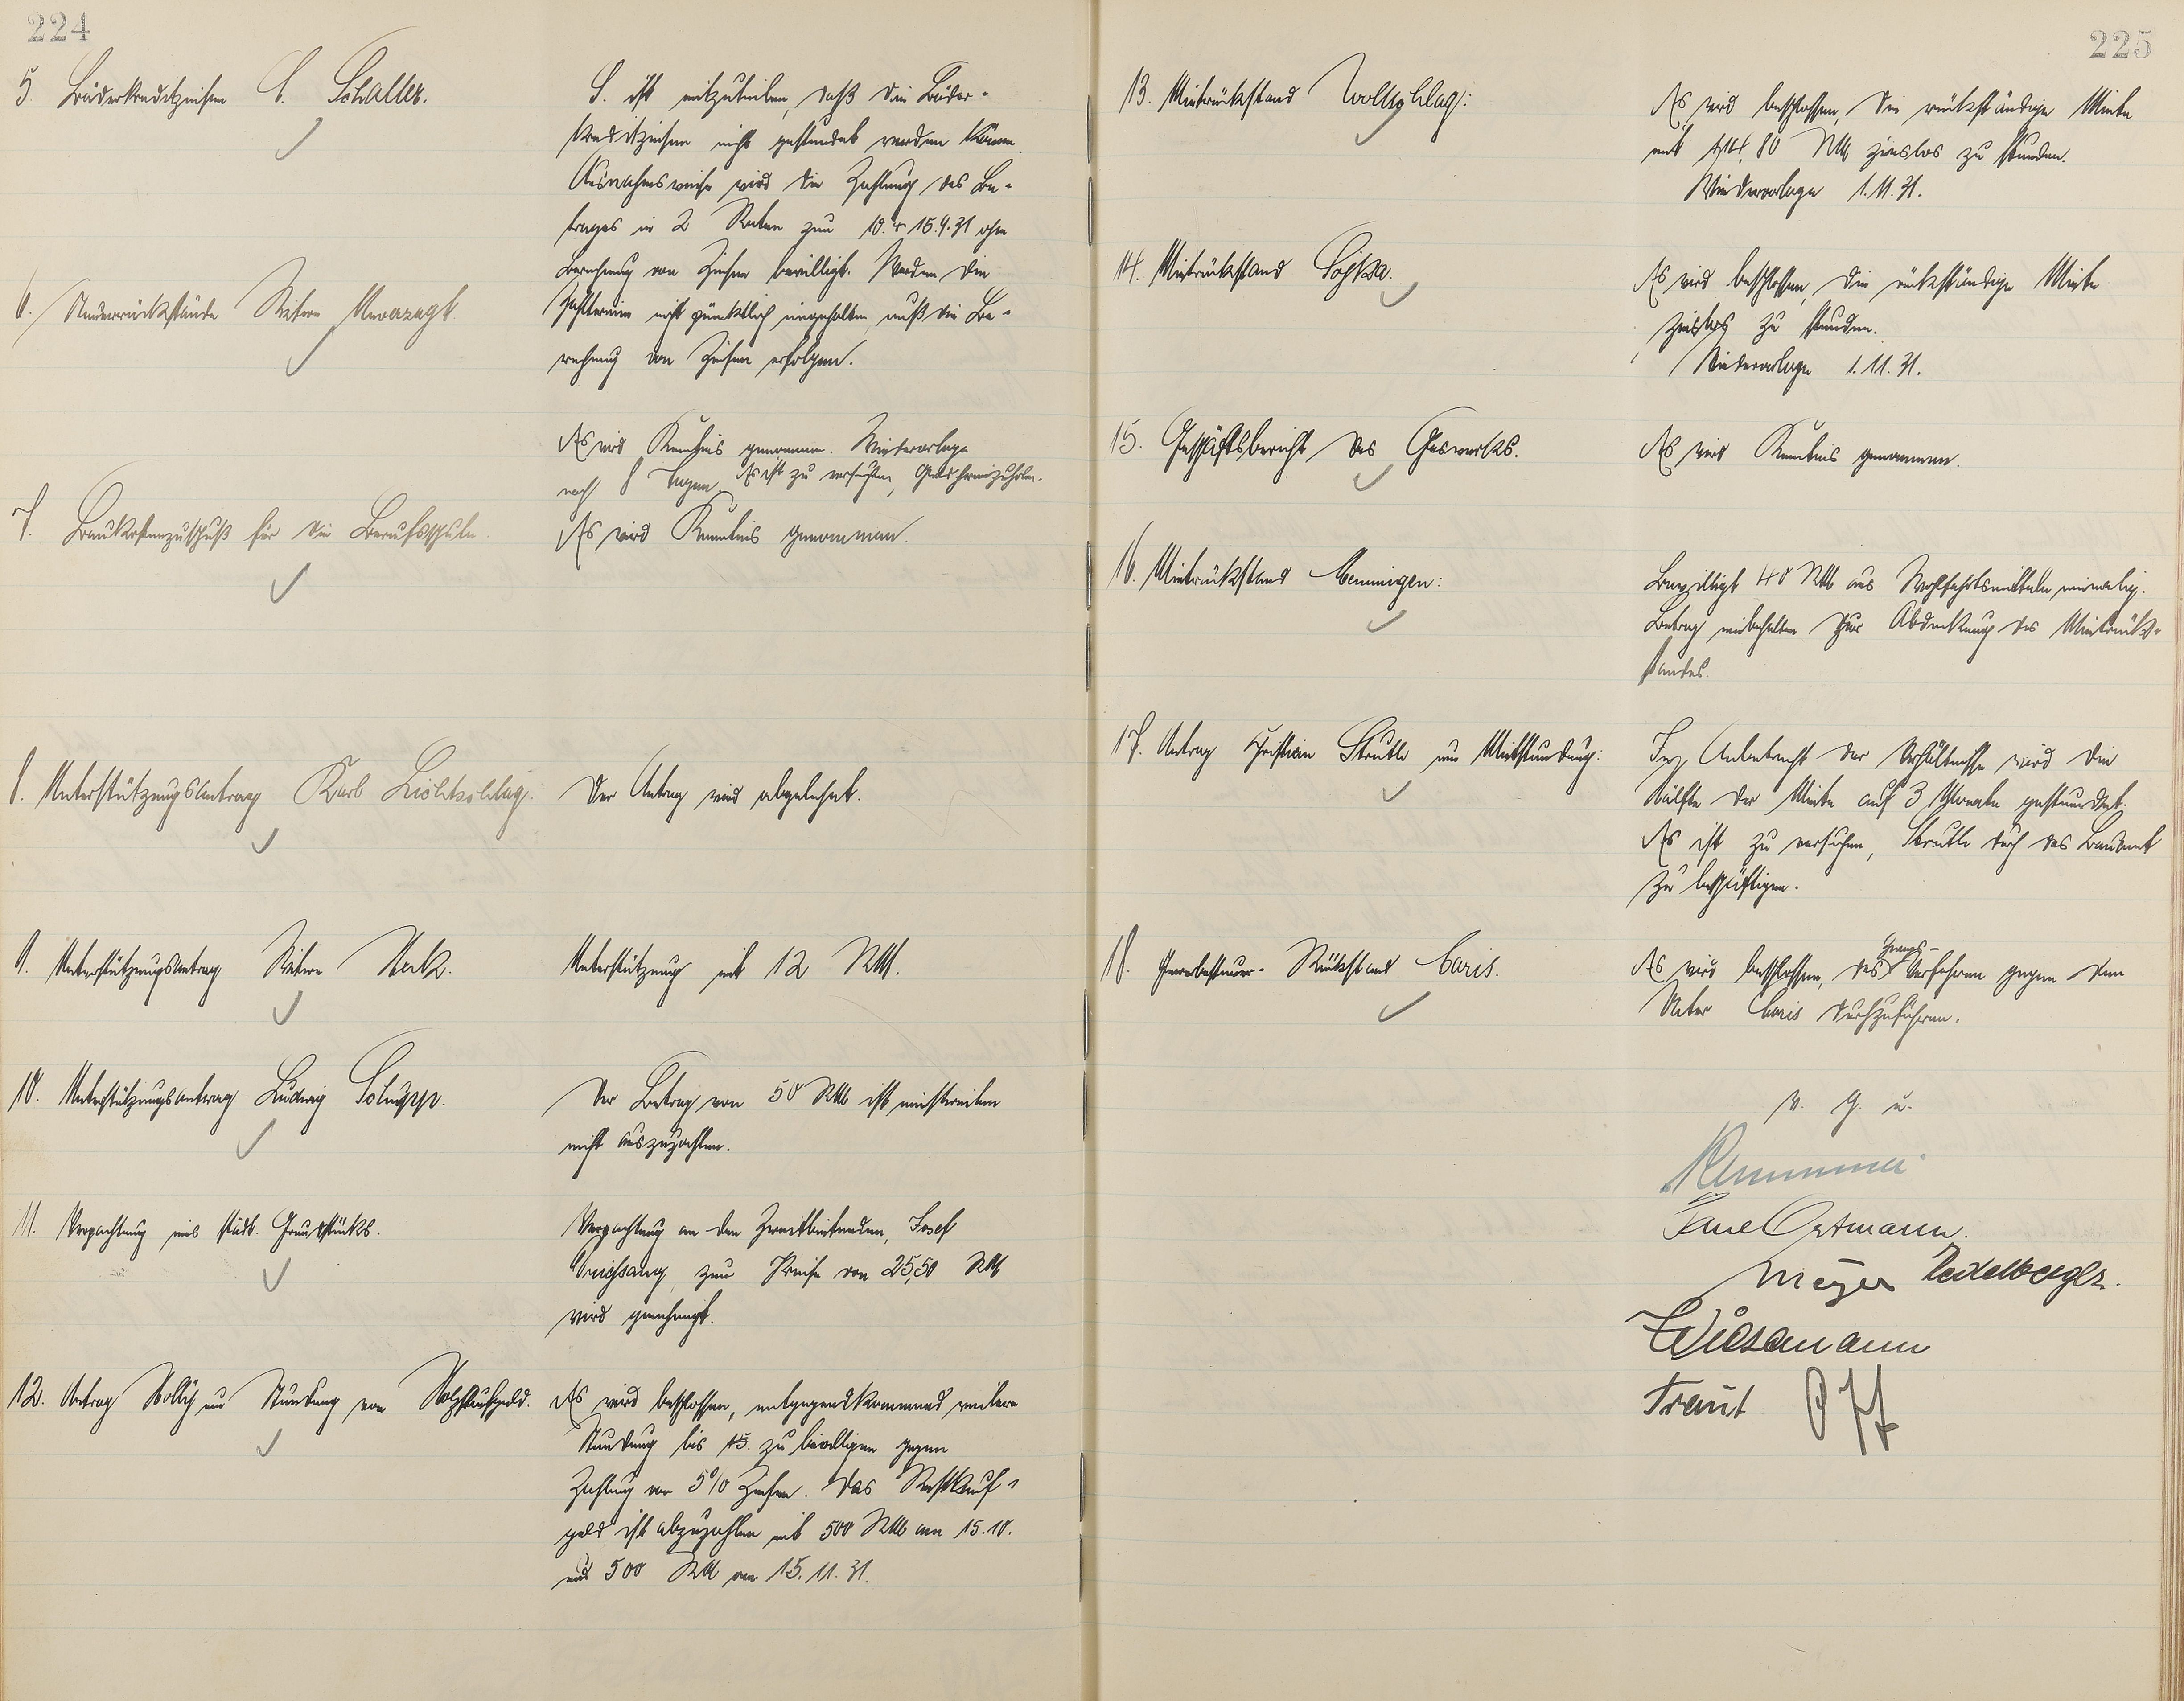 224
5. Bäderkreditzinsen C. Schaller.
S. ist mitzuteilen, daß die Bäder-
kreditzinsen nicht gestundet werden können.
Ausnahmsweise wird die Zahlung des Be-
trages in 2 Raten zum 10. & 15.9.31 ohne
Berechnung von Zinsen bewilligt. Werden die
Zahltermine nicht pünktlich eingehalten, muß die Be-
rechnung von Zinsen erfolgen.
6. Steuerrückstände Witwe Unverzagt.
Es wird Kenntnis genommen. Wiedervorlage
nach 8 Tagen. Es ist zu versuchen, Geld hereinzuholen.
7. Baukostenzuschuß für die Berufsschule.
Es wird Kenntnis genommen.
8. Unterstützungsantrag Karl Lichtschlag.
Der Antrag wird abgelehnt.
9. Unterstützungsantrag Witwe Merk.
Unterstützung mit 12 RM.
10. Unterstützungsantrag Ludwig Schupp.
Der Betrag von 50 RM ist einstweilen
nicht auszuzahlen.
11. Verpachtung eines städt. Grundstücks.
Verpachtung an den Zweitbietenden, Josef
zum Preise von 25,50 RM
wird genehmigt.
12. Antrag um Stundung von Holzkaufgeld.
Es wird beschlossen, entgegenkommend weitere
Stundung bis 15. zu bewilligen gegen
Zahlung von 5% Zinsen. Das Restkauf-
geld ist abzuzahlen mit 500 RM am 15.10.
und 500 RM am 15.11.31.
225
13. Mietrückstand Wollschläg:
Es wird beschlossen, die rückständige Miete
mit 80 RM zinslos zu stunden.
Wiedervorlage 1.11.31.
14. Mietrückstand
Es wird beschlossen, die rückständige Miete
zinslos zu stunden.
Wiedervorlage 1.11.31.
15. Geschäftsbericht des Gaswerks.
Es wird Kenntnis genommen.
16. Mietrückstand Menningen:
Bewilligt 40 RM aus Wohlfahrtsmitteln einmalig.
Betrag einbehalten zur Abdeckung des Mietrück-
standes.
17. Antrag Christian Strutli um Mietstundung:
In Anbetracht der Verhältnisse wird die
Hälfte der Miete auf 3 Monate gestundet.
Es ist zu versuchen, Strutli durch das Bauamt
zu beschäftigen.
18. Gewerbesteuer-Rückstand Caris.
Es wird beschlossen, das Zwangs-
Verfahren gegen den
Vater Caris durchzuführen.
v. g. u.
Ortmann.
Meyer Redelberger.
Wiesemann
Traut Off